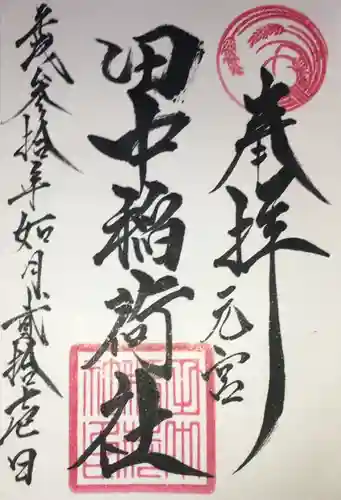 奉拝
元宮
田中稲荷社
平成参拾年如月弐拾壱日